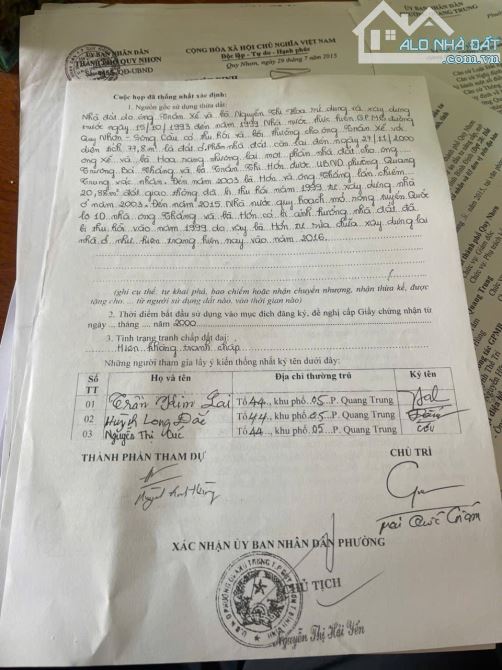 ALO NHÀ ĐẤT
.com.vn
ỦY BAN NHÂN DÂN
THÀNH PHỐ QUY NHƠN
CỘNG HÒA XÃ HỘI CHỦ NGHĨA VIỆT NAM
Độc lập - Tự do - Hạnh phúc
QĐ-UBND
Quy Nhơn, ngày 29 tháng 7 năm 2015
Cuộc họp đã thống nhất xác định:
1. Nguồn gốc sử dụng thửa đất:
Nhà đất do ông Trần Xế và bà Nguyễn Thị Hoa sử dụng và xây dựng
trước ngày 15/10/1993 đến năm 1999 Nhà nước thực hiện GPMB đường
Quy Nhơn - Sông Cầu có thu hồi và bồi thường cho ông Trần Xế với
diện tích 77,8m² là đất ở. Phần nhà đất còn lại đến 27/11/2000
ông Xế và bà Hoa sang nhượng lại một phần nhà đất cho ông
Trương Bá Thắng và bà Trần Thị Hơn được UBND phường Quang
Trung xác nhận. Đến năm 2003 bà Hơn và ông Thắng lấn chiếm
20,98m² đất giao thông đã bị thu hồi năm 1999 tự xây dựng nhà
ở năm 2003. Đến năm 2015 Nhà nước quy hoạch mở rộng tuyến Quốc
lộ 1D nhà ông Thắng và bà Hơn có bị ảnh hưởng nhà đất đã
bị thu hồi vào năm 1999 do vậy bà Hơn tự sửa chữa xây dựng lại
nhà ở như hiện trạng hiện nay vào năm 2016.
(ghi cụ thể, tự khai phá, bao chiếm hoặc nhận chuyển nhượng, nhận thừa kế, được
tặng cho... từ người sử dụng đất nào, vào thời gian nào)
2. Thời điểm bắt đầu sử dụng vào mục đích đăng ký, đề nghị cấp Giấy chứng nhận từ
ngày ... tháng .... năm 2000
3. Tình trạng tranh chấp đất đai:
Hiện không tranh chấp
Những người tham gia lấy ý kiến thống nhất ký tên dưới đây:
Số TT Họ và tên Địa chỉ thường trú Ký tên
01 Trần Kim Lai Tổ 44.., khu phố .05...P. Quang Trung
02 Huỳnh Long Đắc Tổ 44.., khu phố .05...P. Quang Trung
03 Nguyễn Thị Cúc Tổ 44.., khu phố .05...P. Quang Trung Cúc
THÀNH PHẦN THAM DỰ
CHỦ TRÌ
XÁC NHẬN ỦY BAN NHÂN DÂN PHƯỜNG
CHỦ TỊCH
Nguyễn Thị Hải Yến